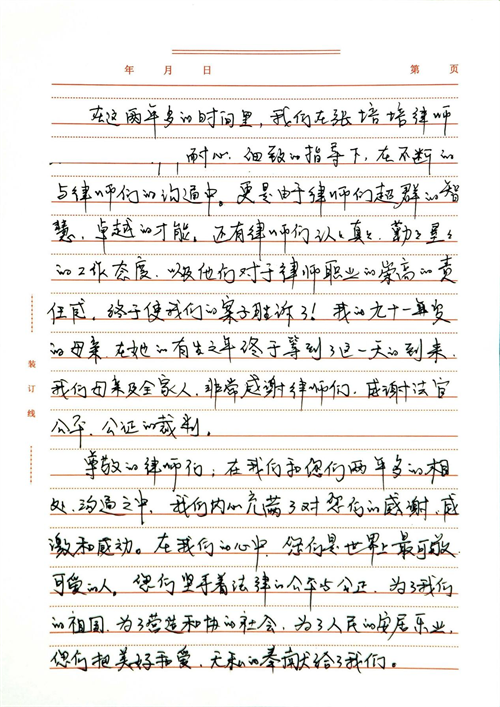 年 月 日 第 页
在这两年多的时间里，我们在张培培律师
耐心、细致的指导下，在不断的
与律师们的沟通中。更是由于律师们超群的智
慧、卓越的才能。还有律师们认认真真、勤勤恳恳
的工作态度、以及他们对于律师职业的崇高的责
任感，终于使我们的案子胜诉了！我的九十一岁
的母亲、在她的有生之年终于等到了这一天的到来，
我们母亲及全家人、非常感谢律师们、感谢法官
公平、公证的裁判。
尊敬的律师们；在我们和您们两年多的相
处、沟通之中、我们内心充满了对您们的感谢、感
激和感动。在我们的心中、您们是世界上最可敬、
可爱的人。您们坚守着法律的公平与公正、为了我们
的祖国、为了营造和协的社会、为了人民的安居乐业，
您们把美好和爱、无私的奉献给了我们。
装订线